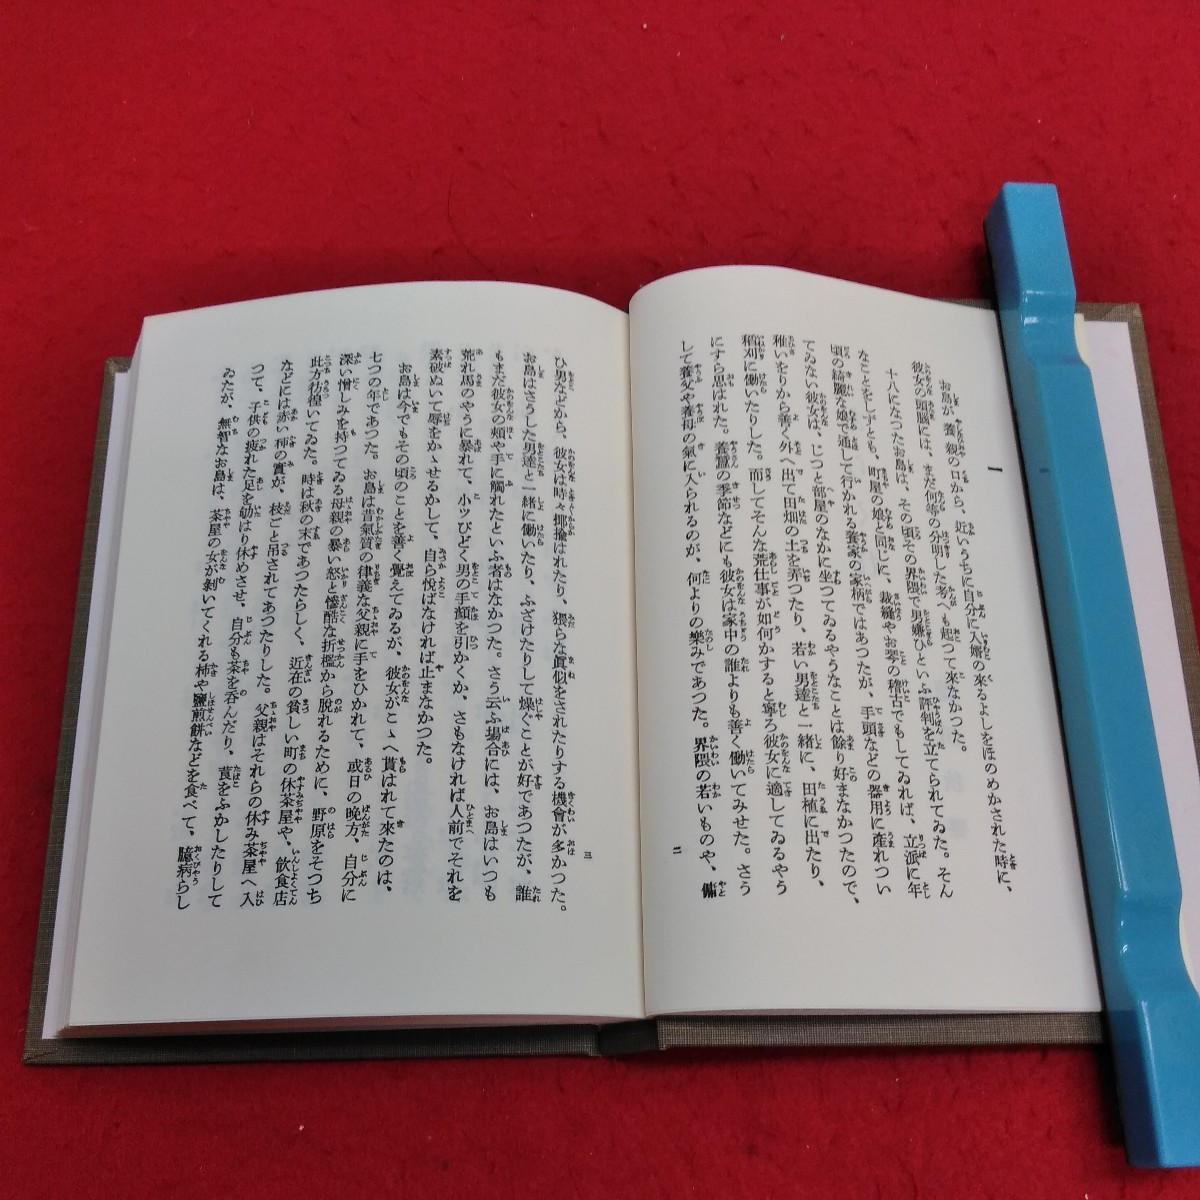 一
お島が養親の口から、近いうちに自分に入婿の來るよしをほのめかされた時に、
彼女の頭腦には、まだ何等の分明した考へも起つて來なかつた。
十八になつたお島は、その頃その界隈で男嫌ひといふ評判を立てられてゐた。そん
なことをしずとも、町屋の娘と同じに、裁縫やお琴の稽古でもしてゐれば、立派に年
頃の綺麗な娘で通して行かれる養家の家柄ではあつたが、手頭などの器用に產れつい
てゐない彼女は、じつと部屋のなかに坐つてゐるやうなことは餘り好まなかつたので、
稚いをりから善く外へ出て田畑の土を弄つたり、若い男達と一緒に、田植に出たり、
稻刈に働いたりした。而してそんな荒仕事が如何かすると寧ろ彼女に適してゐるやう
にすら思はれた。養蠶の季節などにも彼女は家中の誰よりも善く働いてみせた。さう
して養父や養母の氣に入られるのが、何よりの樂みであつた。界隈の若いものや、傭
二
ひ男などから、彼女は時々揶揄はれたり、猥らな眞似をされたりする機會が多かつた。
お島はさうした男達と一緒に働いたり、ふざけたりして燥ぐことが好であつたが、誰
もまだ彼女の頰や手に觸れたといふ者はなかつた。さう云ふ場合には、お島はいつも
荒れ馬のやうに暴れて、小ッぴどく男の手顏を引かくか、さもなければ人前でそれを
素破ぬいて辱をかゝせるかして、自ら悅ばなければ止まなかつた。
お島は今でもその頃のことを善く覺えてゐるが、彼女がこゝへ貰はれて來たのは、
七つの年であつた。お島は昔氣質の律義な父親に手をひかれて、或日の晚方、自分に
深い憎しみを持つてゐる母親の暴い怒と慘酷な折檻から脫れるために、野原をそつち
此方彷徨いてゐた。時は秋の末であつたらしく、近在の貧しい町の休茶屋や、飮食店
などには赤い柿の實が、枝ごと吊されてあつたりした。父親はそれらの休み茶屋へ入
つて、子供の疲れた足を劬はり休めさせ、自分も茶を呑んだり、莨をふかしたりして
ゐたが、無智なお島は、茶屋の女が剝いてくれる柿や鹽煎餅などを食べて、臆病らし
三